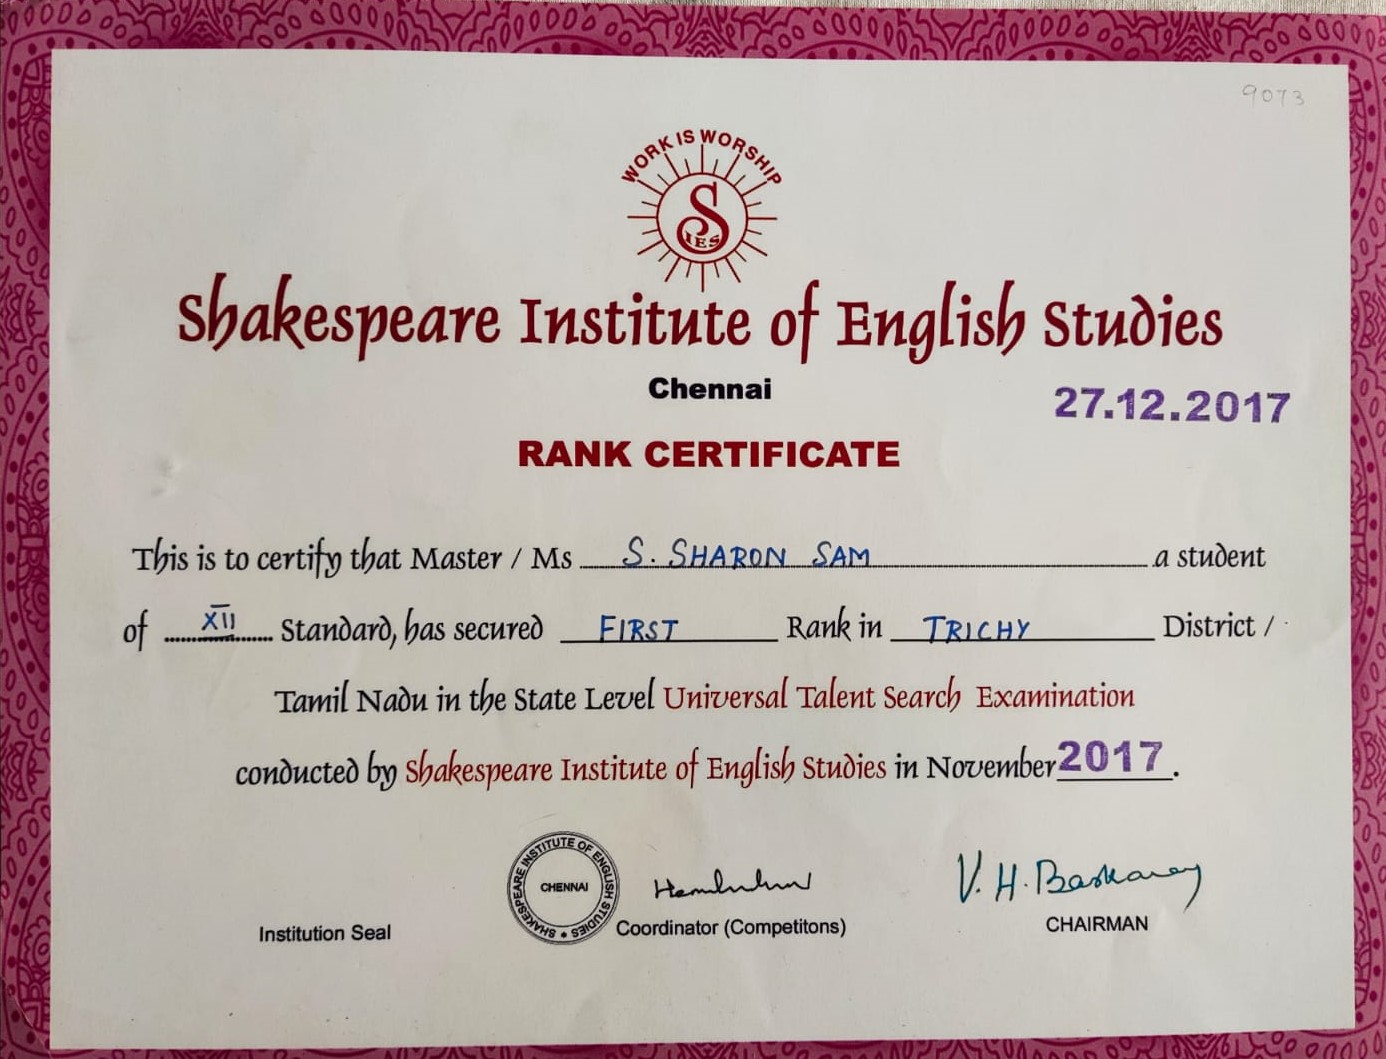 9073
WORK IS WORSHIP
S
IES
Shakespeare Institute of English Studies
Chennai
27.12.2017
RANK CERTIFICATE
This is to certify that Master / Ms S. SHARON SAM a student
of XII Standard, has secured FIRST Rank in TRICHY District /
Tamil Nadu in the State Level Universal Talent Search Examination
conducted by Shakespeare Institute of English Studies in November 2017.
SHAKESPEARE INSTITUTE OF ENGLISH STUDIES
CHENNAI
V. H. Baskaran
Institution Seal
Coordinator (Competitons)
CHAIRMAN